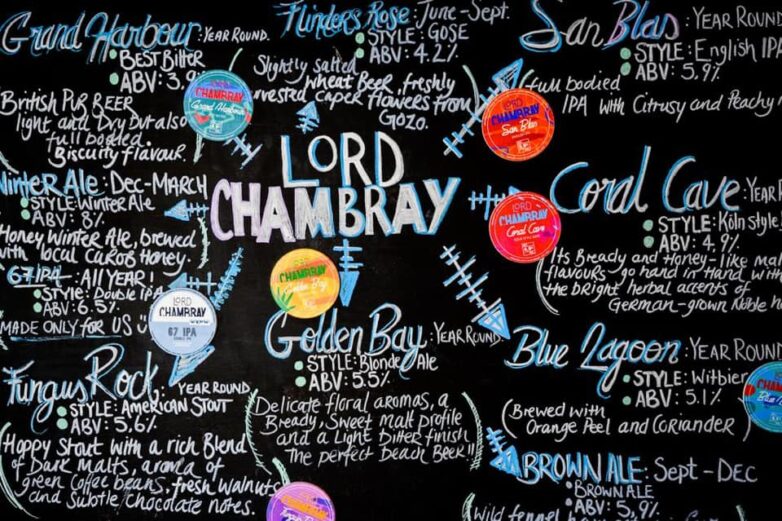 Grand Harbour: YEAR ROUND.
BEST Bitter
ABV: 3.9
British Pub BEER
light and Dry but also
full bodied.
Biscuity flavour.
Flinders Rose: June-Sept.
STYLE: GOSE
ABV: 4.2%
Slightly salted
Wheat Beer, freshly
harvested caper flowers from
Gozo.
San Blas: YEAR ROUND
STYLE: English IPA
ABV: 5.9%
full bodied
IPA with Citrusy and Peachy
LORD
CHAMBRAY
LORD
CHAMBRAY
Grand Harbour
LORD
CHAMBRAY
San Blas
Winter Ale: Dec-MARCH
STYLE: Winter Ale
ABV: 8%
Honey Winter Ale, brewed
with local Carob Honey.
Coral Cave: YEAR
STYLE: Köln style
ABV: 4,9%
Its Bready and Honey-like mal
flavours go hand in Hand with
the bright herbal accents of
German-grown Noble H
LORD
CHAMBRAY
Coral Cave
67 IPA - All YEAR!
STYLE: Double IPA
ABV: 6.5%
MADE ONLY for US
LORD
CHAMBRAY
67 IPA
CHAMBRAY
Golden Bay
Golden Bay: YEAR ROUND.
STYLE: Blonde Ale
ABV: 5.5%
Delicate floral aromas, a
Bready, Sweet malt profile
and a Light Bitter finish
The perfect Beach Beer"
Blue Lagoon: YEAR ROUND
STYLE: Witbier
ABV: 5.1%
Brewed with
Orange Peel and Coriander
Fungus Rock: YEAR ROUND
STYLE: American STOUT
ABV: 5.6%
Hoppy Stout with a rich Blend
of Dark Malts, aroma of
green Coffee beans, fresh walnuts
and subtle chocolate notes.
BROWN ALE: Sept - DEC
BROWN ALE
ABV: 5,9%
Wild fennel